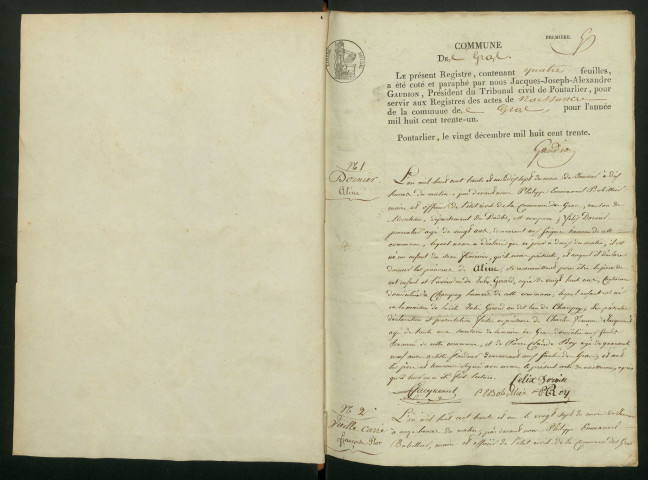 PREMIÈRE
COMMUNE
DE Gras
LE présent Registre, contenant quatre feuilles,
a été coté et paraphé par nous Jacques-Joseph-Alexandre
GAUDION, Président du Tribunal civil de Pontarlier, pour
servir aux Registres des actes de Naissance
de la commune de Gras pour l'année
mil huit cent trente-un.
Pontarlier, le vingt décembre mil huit cent trente.
Gaudion
N.º 1
Dornier
Aline
L'an mil huit cent trente et un le dix sept du mois de Janvier à dix
heures du matin, par devant nous Philippe Emmanuel Bobillier
maire et officier de l'état civil de la commune de Gras, canton de
Montbenoit, département du Doubs, est comparu, Félix Dornier
journalier agé de vingt ans, demeurant aux
commune, lequel nous a déclaré que ce jour à du matin, il est
né un enfant du sexe féminin, qu'il nous présente, et auquel il déclare
donner les prénoms de Aline, se reconnaissant pour être le père de
cet enfant et l'avoir eu de Julie Girard, agée de vingt huit ans,
domiciliée à hameau de cette commune, lequel enfant est né
en la maison de ladite Julie Girard au dit lieu de
déclaration et présentation faites en présence de Charles
agé de trente ans de Gras
de cette commune, et de Pierre Claude Roy agé de quarante
neuf ans demeurant aux de Gras, et ont
les père et témoins signé avec nous le présent acte de naissance, après
qu'il leur en a été fait lecture.
Jacquemet
Felix Dornier
P E Bobillier
P C Roy
N.º 2
Vieille
L'an mil huit cent trente et un le vingt sept du mois de Janvier
à onze heures du matin, par devant nous Philippe Emmanuel
Bobillier, maire et officier de l'état civil de la commune de Gras